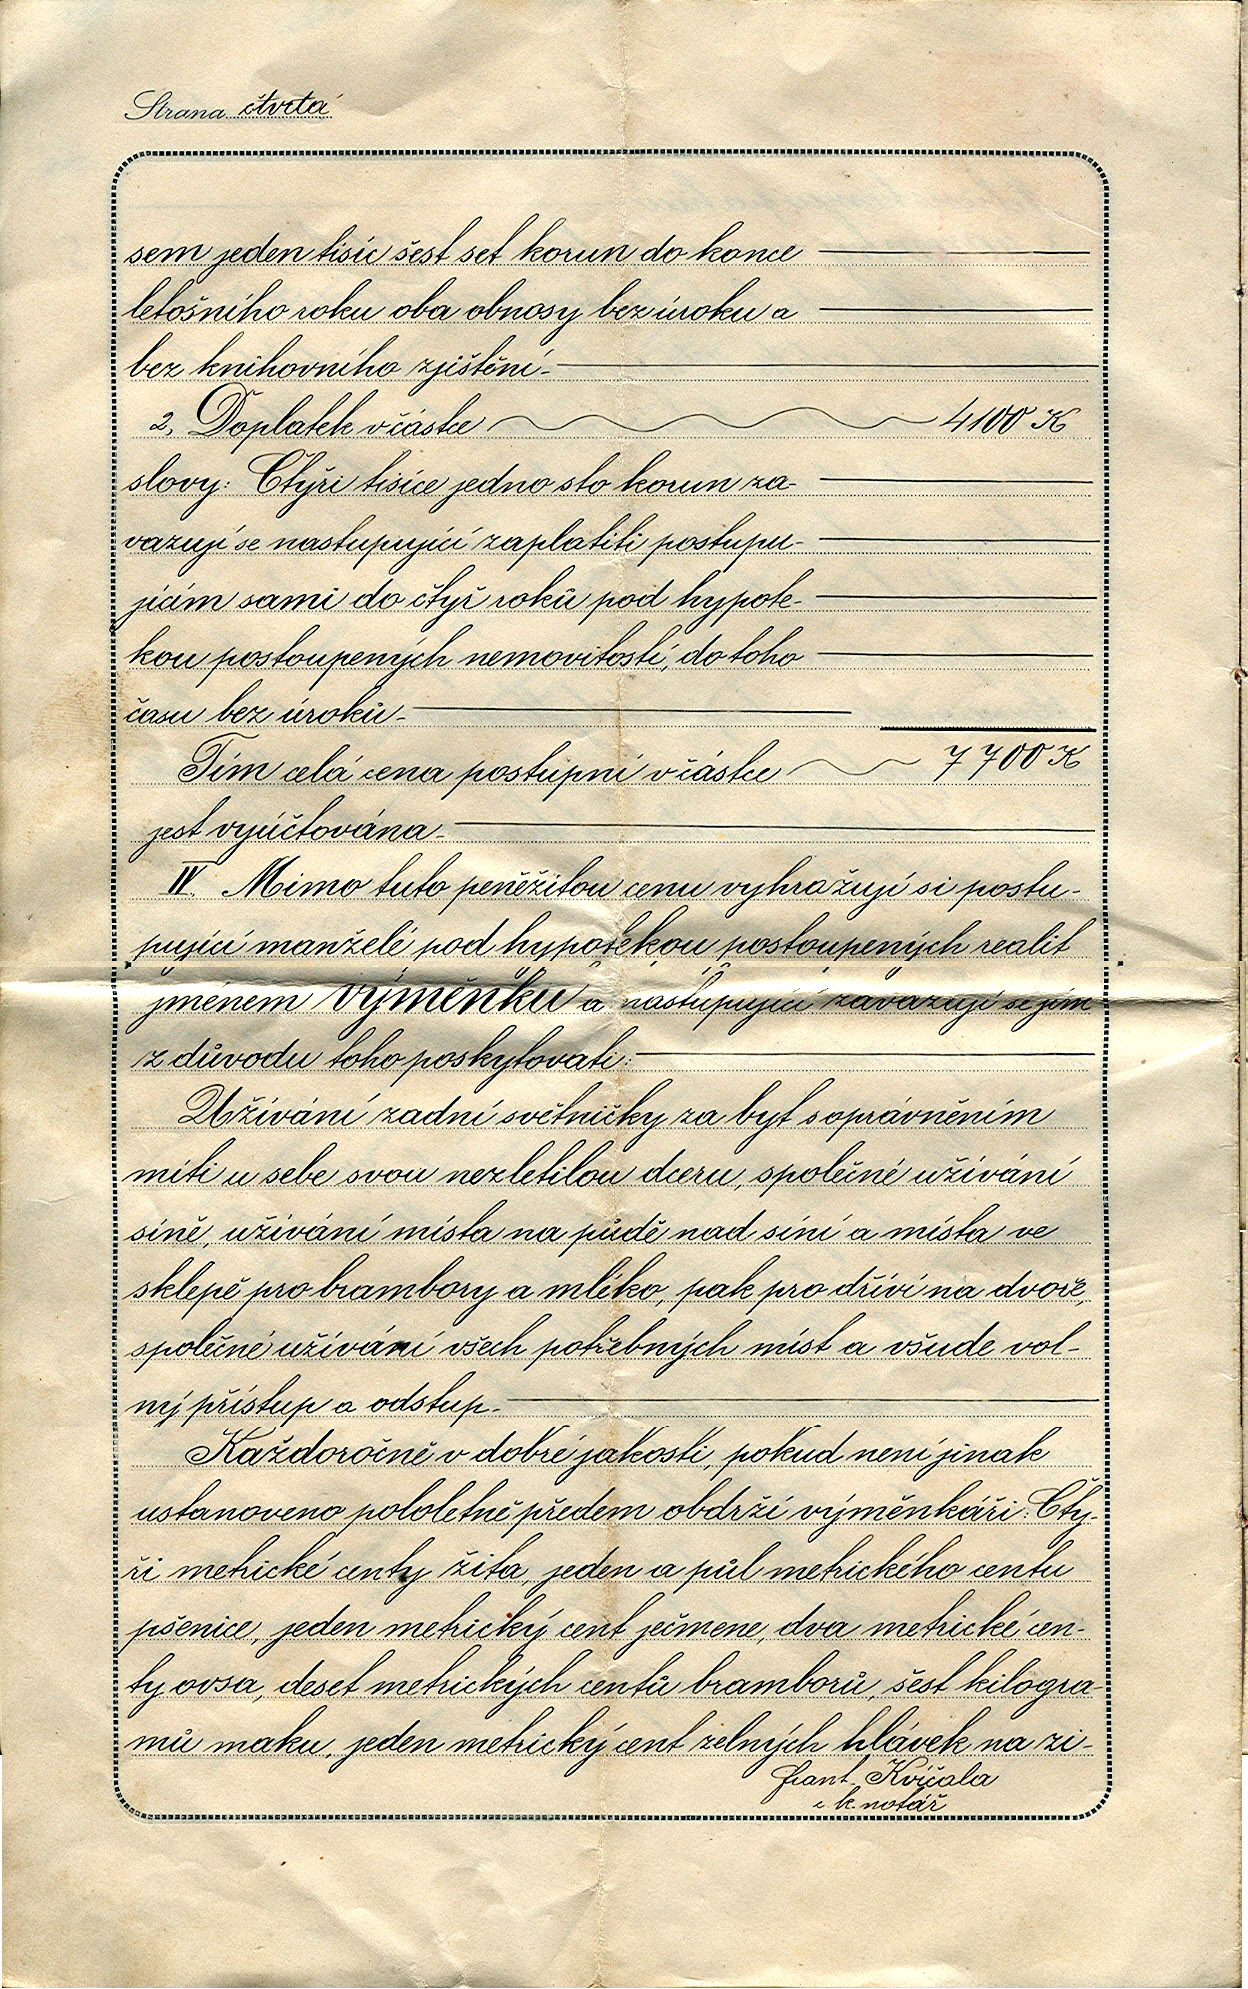 Strana čtvrtá
sem jeden tisíc šest set korun do konce
letošního roku oba obnosy bez úroku a
bez knihovního zjištění.
2, Doplatek v částce 4100 K
slovy: Čtyři tisíce jedno sto korun za-
vazují se nastupující zaplatiti postupu-
jícím sami do čtyř roků pod hypote-
kou postoupených nemovitostí, do toho
času bez úroků.
Tím celá cena postupní v částce 7700 K
jest vyúčtována.
IV. Mimo tuto peněžitou cenu vyhražují si postu-
pující manželé pod hypotékou postoupených realit
jménem výměnku a nastupující zavazují se jim
z důvodu toho poskytovati:
Užívání zadní světničky za byt s oprávněním
míti u sebe svou nezletilou dceru, společné užívání
síně, užívání místa na půdě nad síní a místa ve
sklepě pro brambory a mléko, pak pro dříví na dvoře,
společné užívání všech potřebných míst a všude vol-
ný přístup a odstup.
Každoročně v dobré jakosti, pokud není jinak
ustanoveno pololetně předem obdrží výměnkáři: Čty-
ři metrické centy žita, jeden a půl metrického centu
pšenice, jeden metrický cent ječmene, dva metrické cen-
ty ovsa, deset metrických centů bramborů, šest kilogra-
mů maku, jeden metrický cent zelných hlávek na zi-
Frant. Kvíčala
c. k. notář